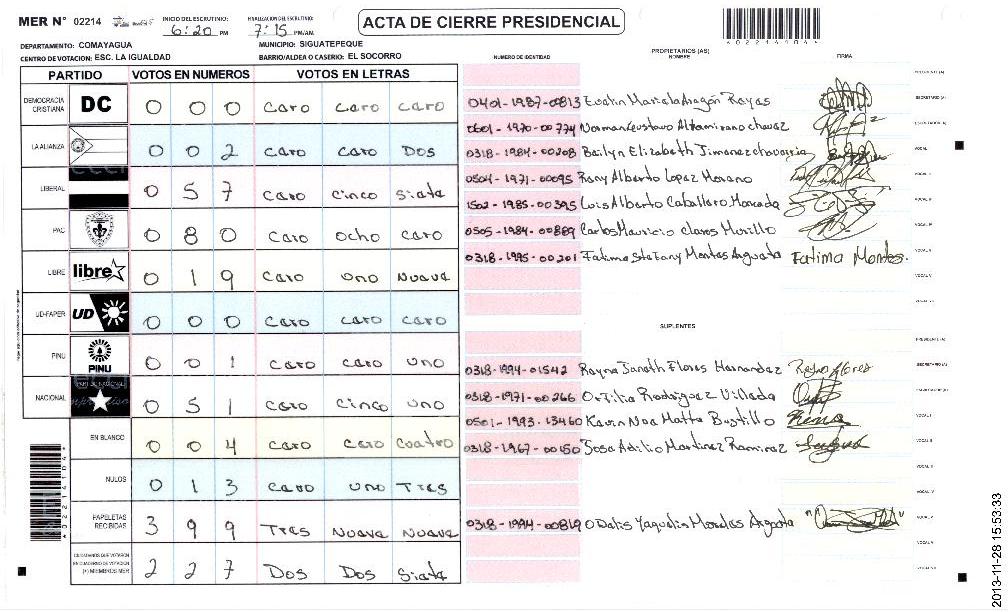 MER N° 02214 INICIO DEL ESCRUTINIO: 6:20 PM FINALIZACION DEL ESCRUTINIO: 7:15 PM/AM. ACTA DE CIERRE PRESIDENCIAL
DEPARTAMENTO: COMAYAGUA MUNICIPIO: SIGUATEPEQUE
CENTRO DE VOTACION: ESC. LA IGUALDAD BARRIO/ALDEA O CASERIO: EL SOCORRO
NUMERO DE IDENTIDAD PROPIETARIOS (AS) NOMBRE FIRMA
PARTIDO VOTOS EN NUMEROS VOTOS EN LETRAS
DEMOCRACIA CRISTIANA DC 0 0 0 cero cero cero
LA ALIANZA 0 0 2 cero cero Dos
LIBERAL 0 5 7 cero cinco siete
PAC 0 8 0 cero ocho cero
LIBRE libre 0 1 9 cero uno Nueve
UD-FAPER UD 0 0 0 cero cero cero
PINU PINU 0 0 1 cero cero uno
NACIONAL 0 5 1 cero cinco uno
EN BLANCO 0 0 4 cero cero cuatro
NULOS 0 1 3 cero uno Tres
PAPELETAS RECIBIDAS 3 9 9 Tres Nueve Nueve
CIUDADANOS QUE VOTARON EN CUADERNO DE VOTACION (+) MIEMBROS MER 2 2 7 Dos Dos siete
0401-1987-00813 Evelin Mariela Aragón Reyes
0601-1970-00774 Norman Gustavo Altamirano chavez
0318-1984-00208 Bailyn Elizabeth Jimenez chavarria
0504-1971-00095 Rony Alberto Lopez Moreno
1502-1985-00395 Luis Alberto Caballero Moncada
0505-1984-00889 Carlos Mauricio claros Murillo
0318-1995-00201 Fatima Stefany Montes Argueta Fatima Montes.
SUPLENTES
0318-1994-01542 Reyna Janeth Flores Hernandez Reyna Flores
0318-1971-00266 Ortilia Rodriguez Villeda
0501-1993-13460 Kevin Noe Matte Bustillo
0318-1967-00150 Jose Adilio Martinez Ramirez
0318-1994-00819 Odalis Yaquelin Morales Argueta
2013-11-28 15:53:33